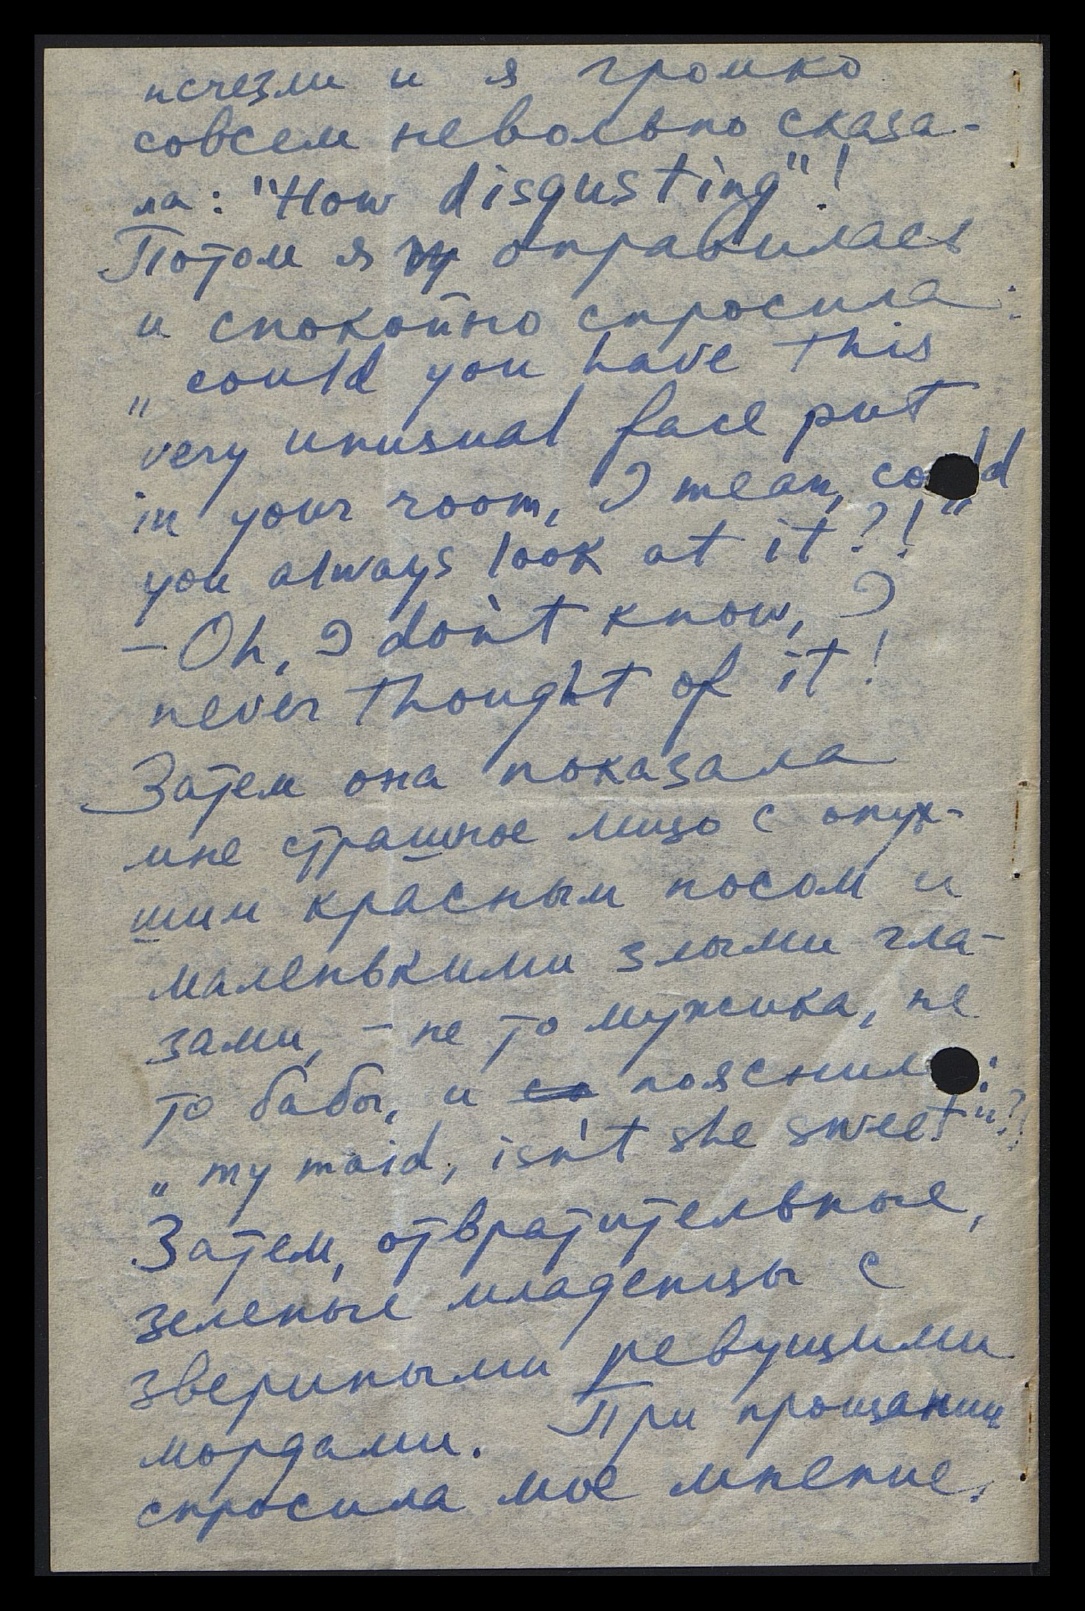 исчезли и я громко
совсем невольно сказа-
ла: "How disgusting"!
Потом я оправилась
и спокойно спросила:
„could you have this
very unusual face put
in your room, I mean, could
you always look at it?!"
- Oh, I don't know, I
never thought of it!
Затем она показала
мне страшное лицо с опух-
шим красным носом и
маленькими злыми гла-
зами, - не то мужика, не
то бабы, и со пояснила:
„my maid, isn't she sweet"?!
Затем, отвратительные,
зеленые младенцы с
звериными ревущими
мордами. При прощании
спросила мое мнение.